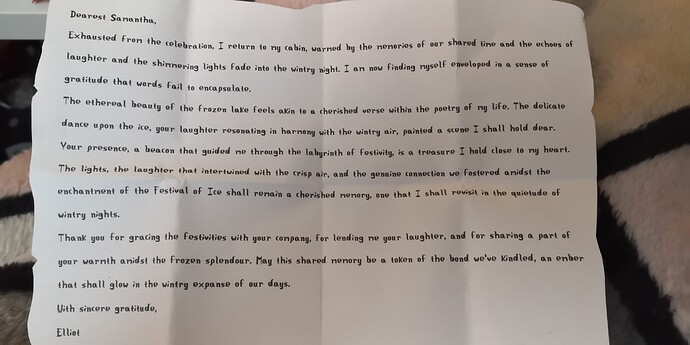 Dearest Samantha,
Exhausted from the celebration, I return to my cabin, warmed by the memories of our shared time and the echoes of
laughter and the shimmering lights fade into the wintry night. I am now finding myself enveloped in a sense of
gratitude that words fail to encapsulate.
The ethereal beauty of the frozen lake feels akin to a cherished verse within the poetry of my life. The delicate
dance upon the ice, your laughter resonating in harmony with the wintry air, painted a scene I shall hold dear.
Your presence, a beacon that guided me through the labyrinth of festivity, is a treasure I hold close to my heart.
The lights, the laughter that intertwined with the crisp air, and the genuine connection we fostered amidst the
enchantment of the Festival of Ice shall remain a cherished memory, one that I shall revisit in the quietude of
wintry nights.
Thank you for gracing the festivities with your company, for lending me your laughter, and for sharing a part of
your warmth amidst the frozen splendour. May this shared memory be a token of the bond we've kindled, an ember
that shall glow in the wintry expanse of our days.
With sincere gratitude,
Elliot